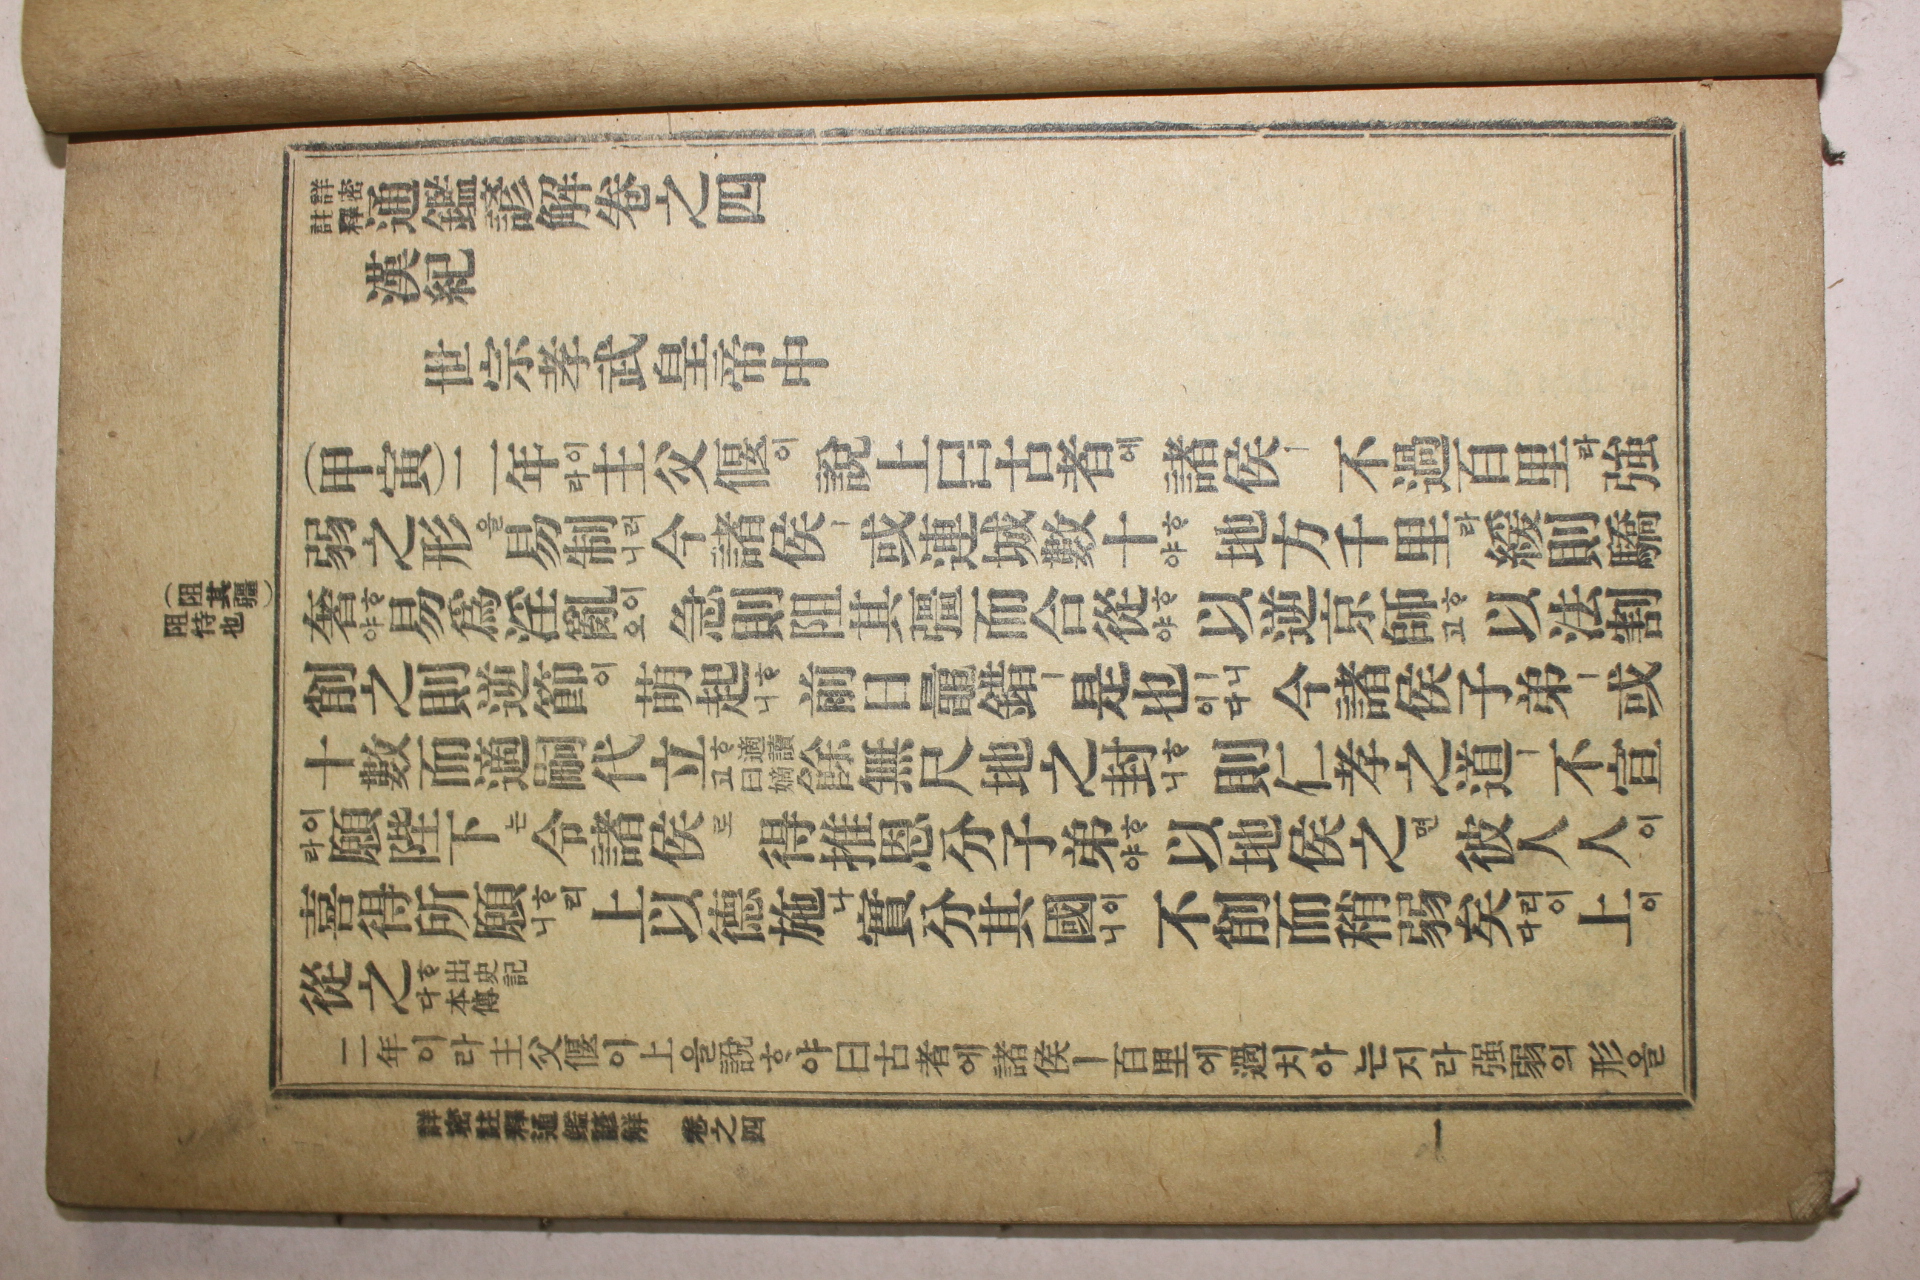 詳密註釋通鑑諺解卷之四
漢紀
世宗孝武皇帝中
(甲寅)二年이라主父偃이說上曰古者에諸侯ㅣ不過百里라強
弱之形을易制러니今諸侯ㅣ或連城數十ᄒᆞ야地方千里라緩則驕
(阻其疆)阻恃也
奢ᄒᆞ야易爲淫亂이오急則阻其疆而合從ᄒᆞ야以逆京師ᄒᆞ고以法割
削之則逆節이萌起ᄒᆞ니前日鼂錯ㅣ是也ㅣ니이다今諸侯子弟ㅣ或
十數而適嗣代立ᄒᆞ고適讀曰嫡餘無尺地之封ᄒᆞ니則仁孝之道ㅣ不宣
이라願陛下는令諸侯로得推恩分子弟ᄒᆞ야以地侯之면彼人人이
喜得所願ᄒᆞ리니上以德施나實分其國이니不削而稍弱矣리이다上이
從之ᄒᆞ다出史記本傳
二年이라主父偃이上을說ᄒᆞ야曰古者에諸侯ㅣ百里에過치아는지라强弱의形을
詳密註釋通鑑諺解 卷之四 一